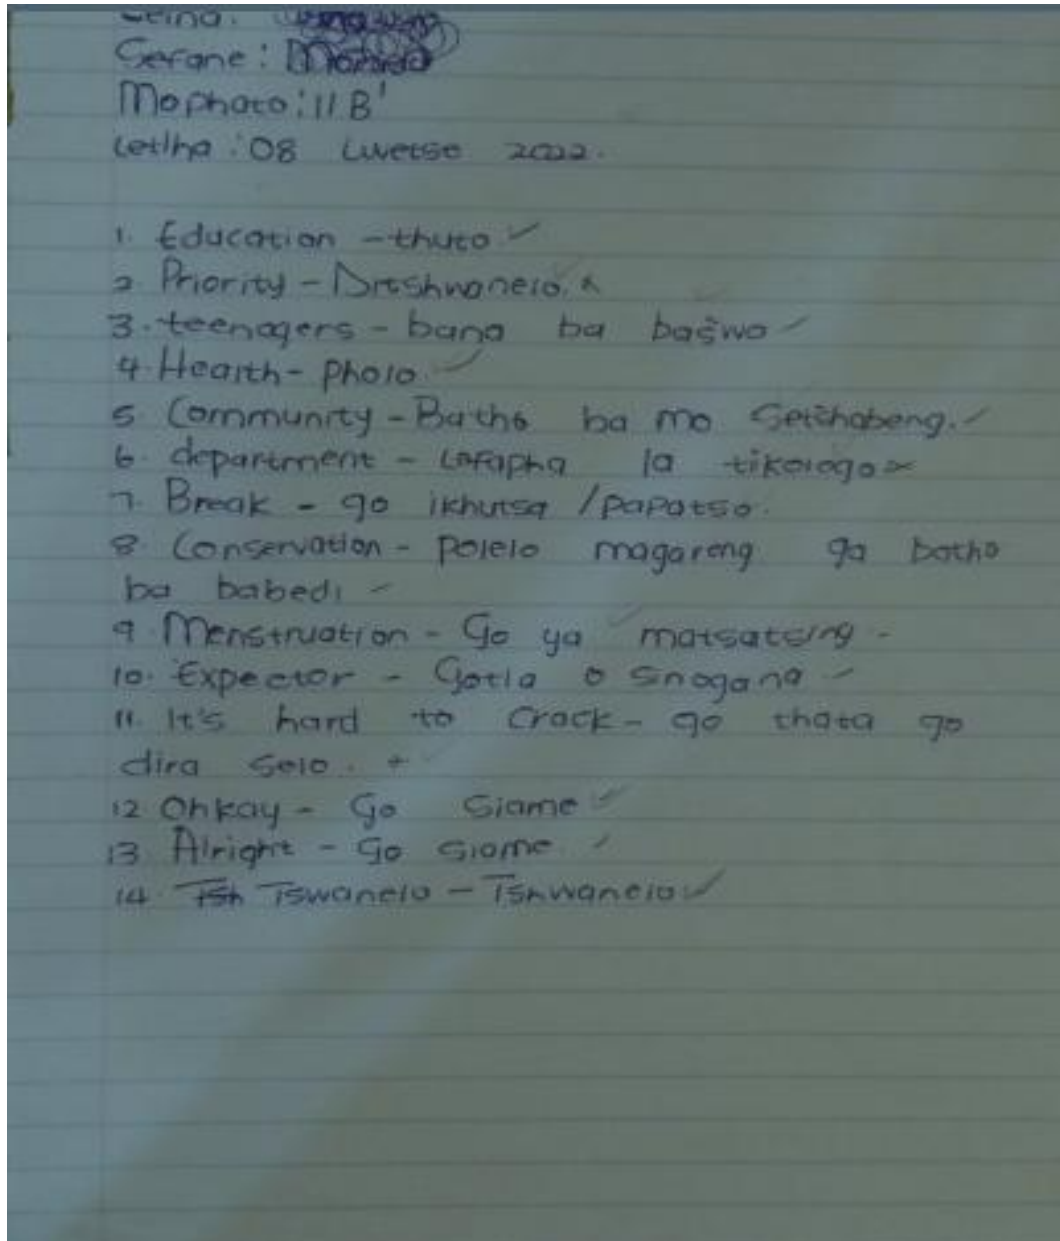 Leina:
Serane:
Mophato: 11 B'
Letlha: 08 Lwetse 2022.
1. Education - thuto
2 Priority - Ditshwanelo.
3. teenagers - bana ba bašwo
4. Health - pholo.
5 Community - Batho ba mo Setšhabeng.
6. department - Lafapha la tikologo
7. Break - go ikhutsa / papatso.
8. Conservation - polelo magareng ga batho
ba babedi
9 Menstruation - Go ya matsatsing -
10. Expector - Gotla o snogana
11. It's hard to Crack - go thata go
dira selo.
12 Ohkay - Go Siame
13. Alright - Go siome
14. Tsh Tswanelo - Tshwanelo